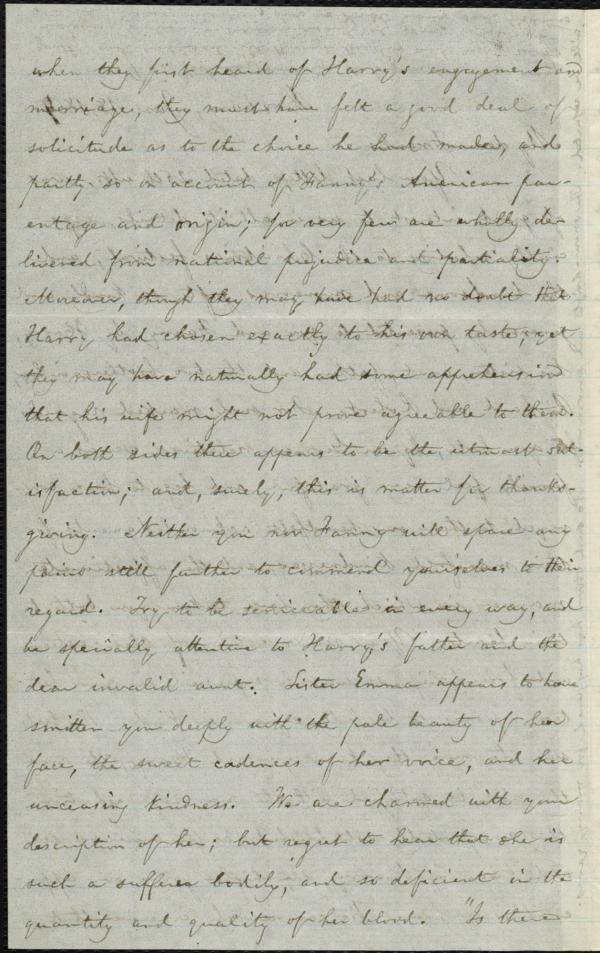 when they first heard of Harry's engagement and
marriage, they must have felt a good deal of
solicitude as to the choice he had made, and
partly so on account of Fanny's American par-
entage and origin; for very few are wholly de-
livered from national prejudice and partiality.
Moreover, though they may have had no doubt that
Harry had chosen exactly to his own taste, yet
they may have naturally had some apprehension
that his wife might not prove agreeable to them.
On both sides there appears to be the utmost sat-
isfaction; and, surely, this is matter for thanks-
giving. Neither you nor Fanny will spare any
pains still further to commend yourselves to their
regard. Try to be serviceable in every way, and
be specially attentive to Harry's father and the
dear invalid aunt. Sister Emma appears to have
smitten you deeply with the pale beauty of her
face, the sweet cadences of her voice, and her
unceasing kindness. We are charmed with your
description of her; but regret to hear that she is
such a sufferer bodily, and so deficient in the
quantity and quality of her blood. "Is there